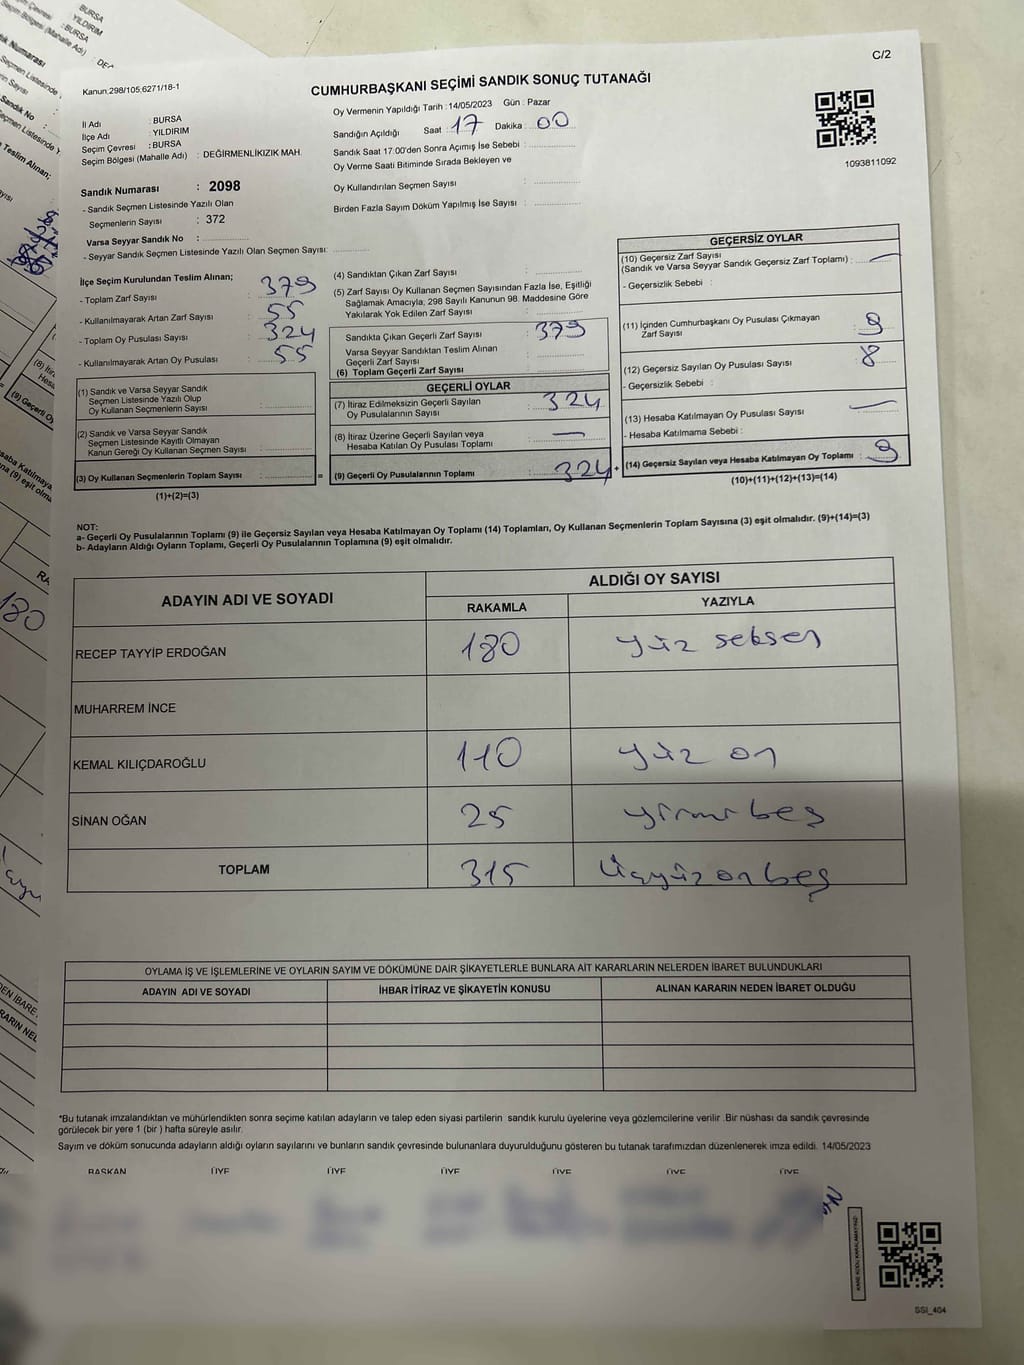 BURSA
YILDIRIM
:BURSA
Seçim Bölgesi (Mahalle Adı)
C/2
Kanun.298/105;6271/18-1
CUMHURBAŞKANI SEÇİMİ SANDIK SONUÇ TUTANAĞI
İl Adı : BURSA
İlçe Adı : YILDIRIM
Seçim Çevresi : BURSA
Seçim Bölgesi (Mahalle Adı) : DEĞİRMENLİKIZIK MAH.
Oy Vermenin Yapıldığı Tarih :14/05/2023 Gün : Pazar
Sandığın Açıldığı Saat : 17 Dakika : 00
Sandık Saat 17.00'den Sonra Açımış İse Sebebi :
Oy Verme Saati Bitiminde Sırada Bekleyen ve
Oy Kullandırılan Seçmen Sayısı :
Birden Fazla Sayım Döküm Yapılmış İse Sayısı :
1093811092
Sandık Numarası : 2098
- Sandık Seçmen Listesinde Yazılı Olan
Seçmenlerin Sayısı : 372
Varsa Seyyar Sandık No :
- Seyyar Sandık Seçmen Listesinde Yazılı Olan Seçmen Sayısı:
İlçe Seçim Kurulundan Teslim Alınan;
- Toplam Zarf Sayısı : 379
- Kullanılmayarak Artan Zarf Sayısı : 55
- Toplam Oy Pusulası Sayısı : 324
- Kullanılmayarak Artan Oy Pusulası : 55
(1) Sandık ve Varsa Seyyar Sandık
Seçmen Listesinde Yazılı Olup
Oy Kullanan Seçmenlerin Sayısı :
(2) Sandık ve Varsa Seyyar Sandık
Seçmen Listesinde Kayıtlı Olmayan
Kanun Gereği Oy Kullanan Seçmen Sayısı :
(3) Oy Kullanan Seçmenlerin Toplam Sayısı :
(1)+(2)=(3)
(4) Sandıktan Çıkan Zarf Sayısı :
(5) Zarf Sayısı Oy Kullanan Seçmen Sayısından Fazla İse, Eşitliği
Sağlamak Amacıyla; 298 Sayılı Kanunun 98. Maddesine Göre
Yakılarak Yok Edilen Zarf Sayısı :
Sandıkta Çıkan Geçerli Zarf Sayısı : 379
Varsa Seyyar Sandıktan Teslim Alınan
Geçerli Zarf Sayısı :
(6) Toplam Geçerli Zarf Sayısı :
GEÇERLİ OYLAR
(7) İtiraz Edilmeksizin Geçerli Sayılan
Oy Pusulalarının Sayısı : 324
(8) İtiraz Üzerine Geçerli Sayılan veya
Hesaba Katılan Oy Pusulası Toplamı : —
= (9) Geçerli Oy Pusulalarının Toplamı 324 +
GEÇERSİZ OYLAR
(10) Geçersiz Zarf Sayısı
(Sandık ve Varsa Seyyar Sandık Geçersiz Zarf Toplamı) : —
- Geçersizlik Sebebi :
(11) İçinden Cumhurbaşkanı Oy Pusulası Çıkmayan
Zarf Sayısı : 9
(12) Geçersiz Sayılan Oy Pusulası Sayısı : 8
- Geçersizlik Sebebi :
(13) Hesaba Katılmayan Oy Pusulası Sayısı : —
- Hesaba Katılmama Sebebi :
(14) Geçersiz Sayılan veya Hesaba Katılmayan Oy Toplamı : 9
(10)+(11)+(12)+(13)=(14)
NOT:
a- Geçerli Oy Pusulalarının Toplamı (9) ile Geçersiz Sayılan veya Hesaba Katılmayan Oy Toplamı (14) Toplamları, Oy Kullanan Seçmenlerin Toplam Sayısına (3) eşit olmalıdır. (9)+(14)=(3)
b- Adayların Aldığı Oyların Toplamı, Geçerli Oy Pusulalarının Toplamına (9) eşit olmalıdır.
ADAYIN ADI VE SOYADI ALDIĞI OY SAYISI
RAKAMLA YAZIYLA
RECEP TAYYİP ERDOĞAN 180 yüz seksen
MUHARREM İNCE
KEMAL KILIÇDAROĞLU 110 yüz on
SİNAN OĞAN 25 yirmi beş
TOPLAM 315 Üçyüz on beş
OYLAMA İŞ VE İŞLEMLERİNE VE OYLARIN SAYIM VE DÖKÜMÜNE DAİR ŞİKAYETLERLE BUNLARA AİT KARARLARIN NELERDEN İBARET BULUNDUKLARI
ADAYIN ADI VE SOYADI İHBAR İTİRAZ VE ŞİKAYETİN KONUSU ALINAN KARARIN NEDEN İBARET OLDUĞU
*Bu tutanak imzalandıktan ve mühürlendikten sonra seçime katılan adayların ve talep eden siyasi partilerin sandık kurulu üyelerine veya gözlemcilerine verilir .Bir nüshası da sandık çevresinde
görülecek bir yere 1 (bir ) hafta süreyle asılır.
Sayım ve döküm sonucunda adayların aldığı oyların sayılarını ve bunların sandık çevresinde bulunanlara duyurulduğunu gösteren bu tutanak tarafımızdan düzenlenerek imza edildi. 14/05/2023
BAŞKAN ÜYE ÜYE ÜYE ÜYE ÜYE ÜYE
KARE KODU KARALAMAYINIZ!
SSI_404